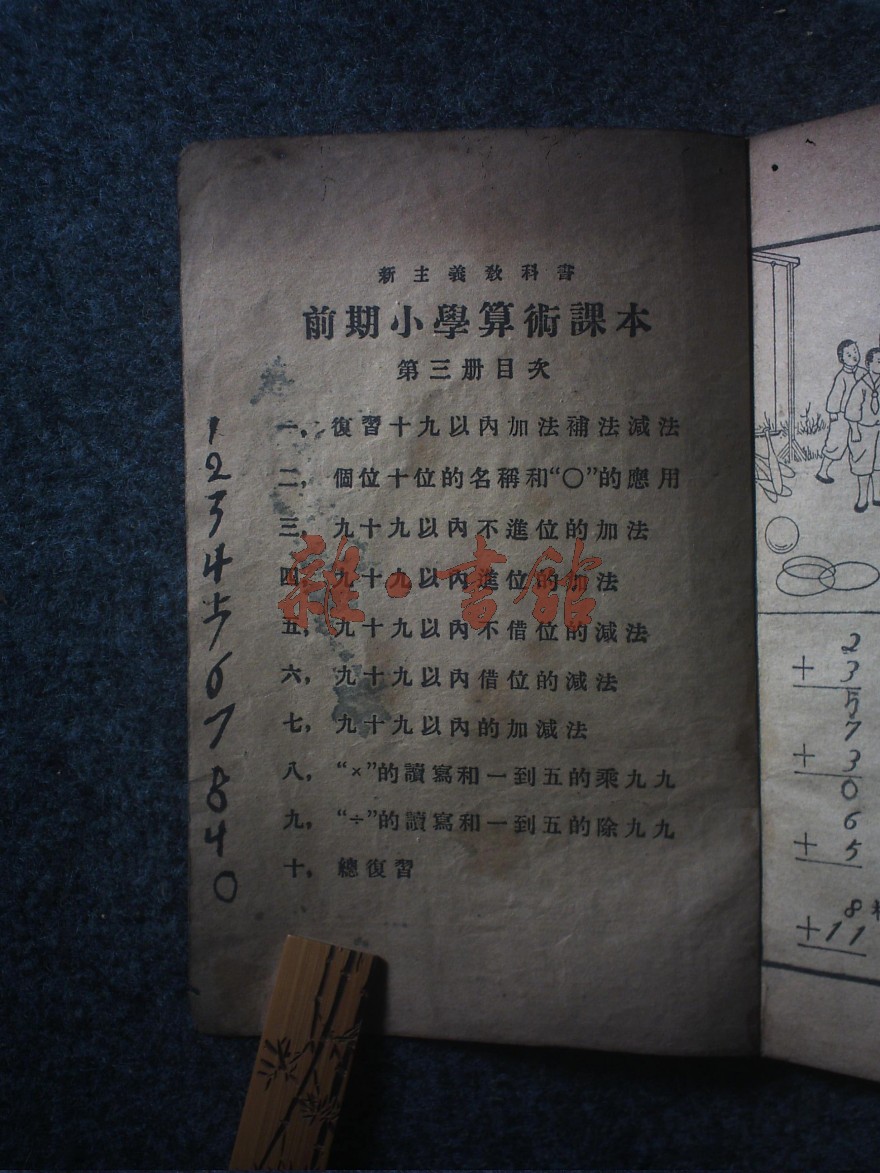 新主義教科書
前期小學算術課本
第三册目次
一，復習十九以內加法補法減法
二，個位十位的名稱和“〇”的應用
三，九十九以內不進位的加法
四，九十九以內進位的加法
五，九十九以內不借位的減法
六，九十九以內借位的減法
七，九十九以內的加減法
八，“×”的讀寫和一到五的乘九九
九，“÷”的讀寫和一到五的除九九
十，總復習
雜·書館
1
2
3
4
5
6
7
8
9
0
2
+ 3
5
7
+ 3
0
6
+ 5
8
+11